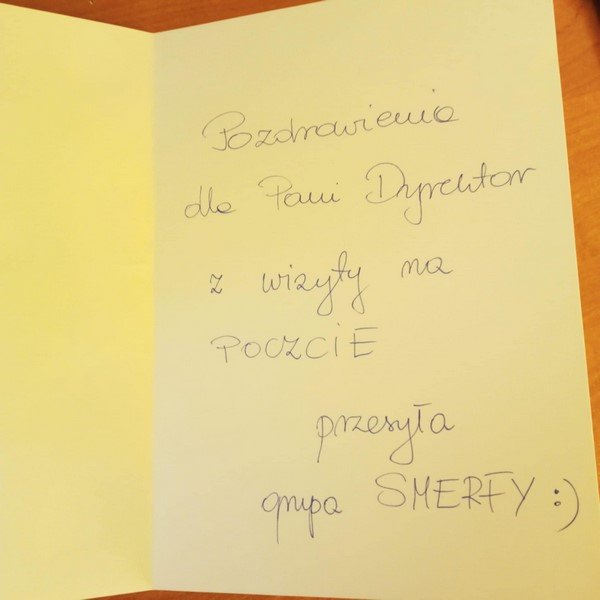 Pozdrawienia
dla Pani Dyrektor
z wizyty na
POCZCIE
przesyła
grupa SMERFY :)